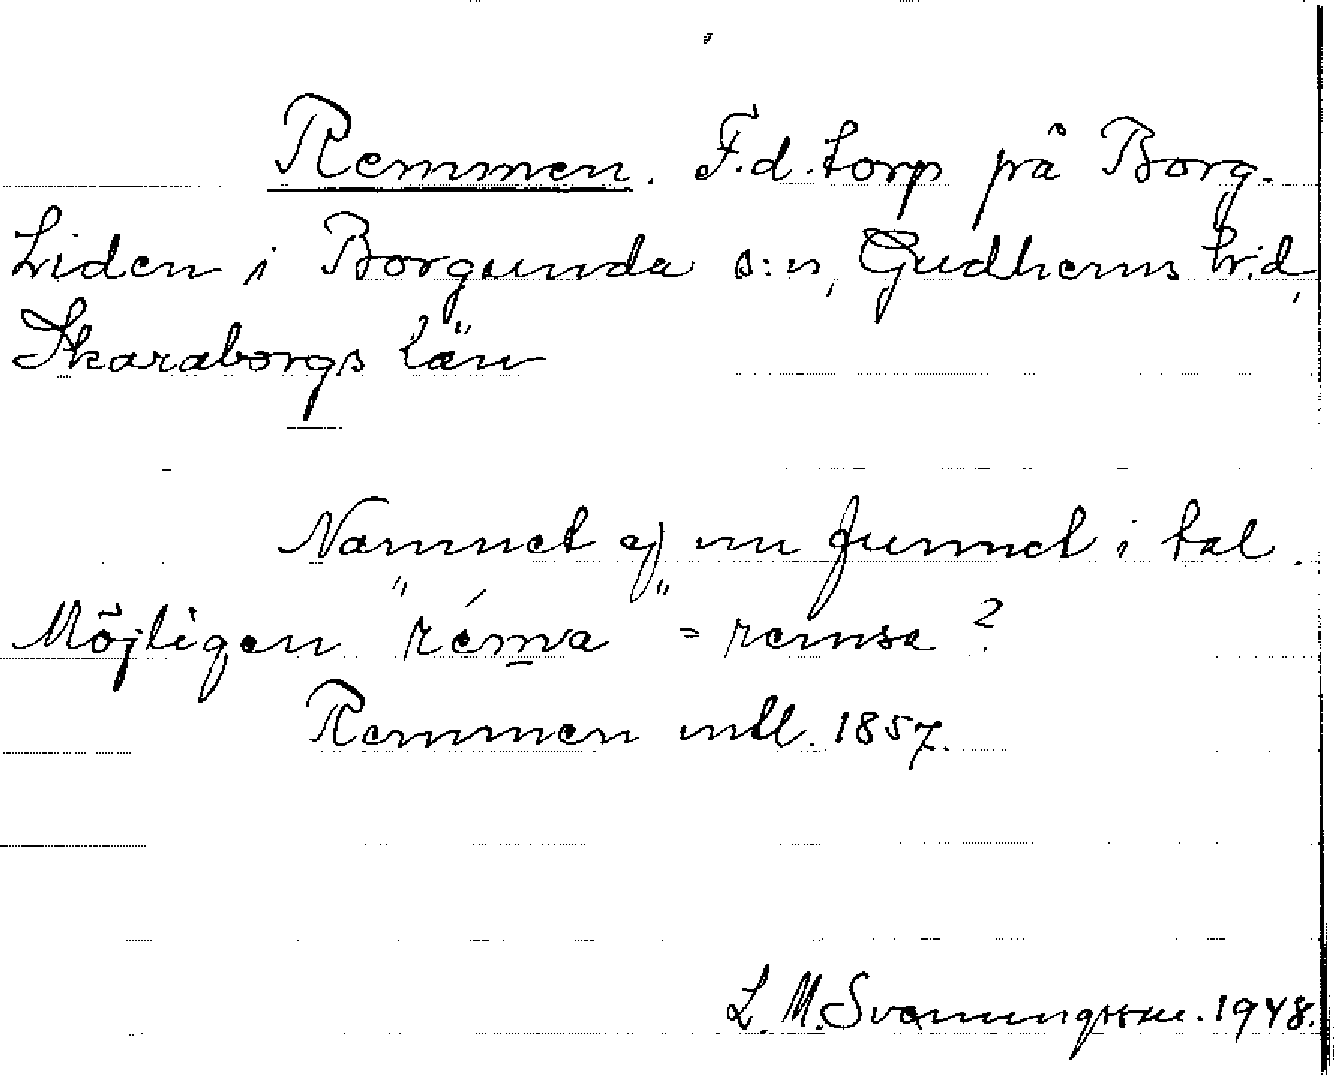 Remmen. F.d. torp på Borg-
Liden i Borgunda s:n, Gudhems h:d,
Skaraborgs län
Namnet ej nu funnet i tal.
Möjligen "réma" = remsa?
Remmen mtl. 1857.
L. M. Svenungsson. 1948.